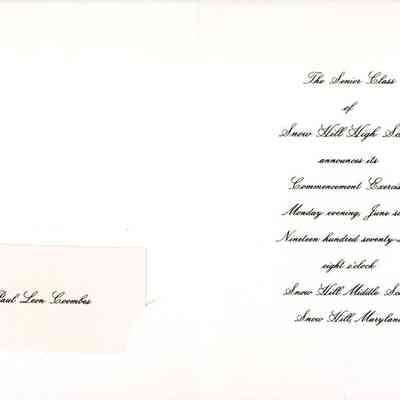 Paul Leon Coombs
The Senior Class
of
Snow Hill High Sc
announces its
Commencement Exercis
Monday evening, June se
Nineteen hundred seventy-
eight o'clock
Snow Hill Middle Sc
Snow Hill, Maryland